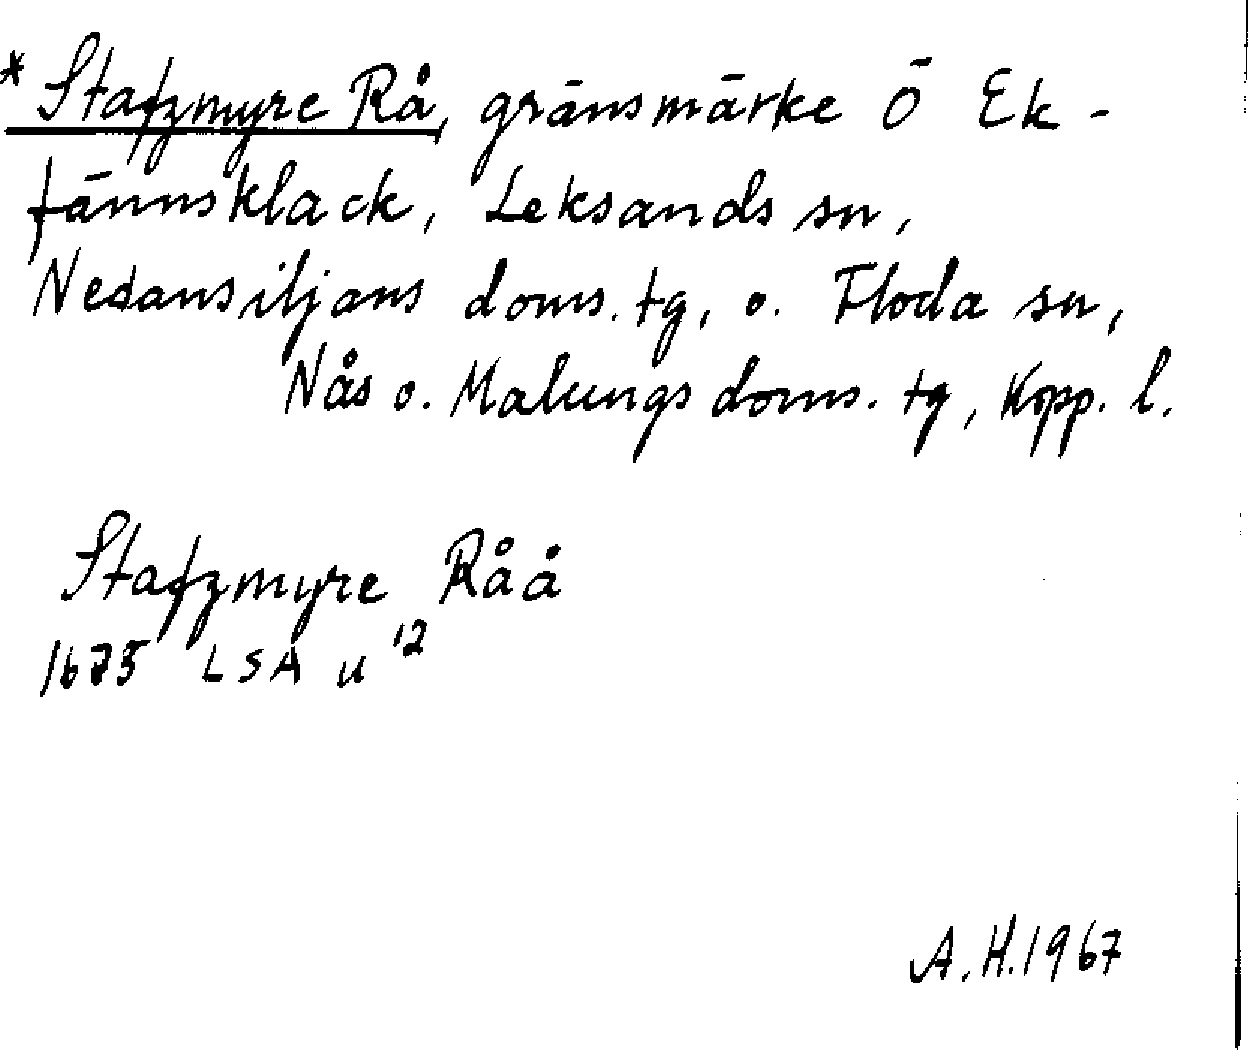 * Stafzmyre Rå, gränsmärke Ö Ek-
fännsklack, Leksands sn,
Nedansiljans doms. tg, o. Floda sn,
Nås o. Malungs doms. tg, Kopp. l.
Stafzmyre Råå
1675 LSA u 12
A.H. 1967